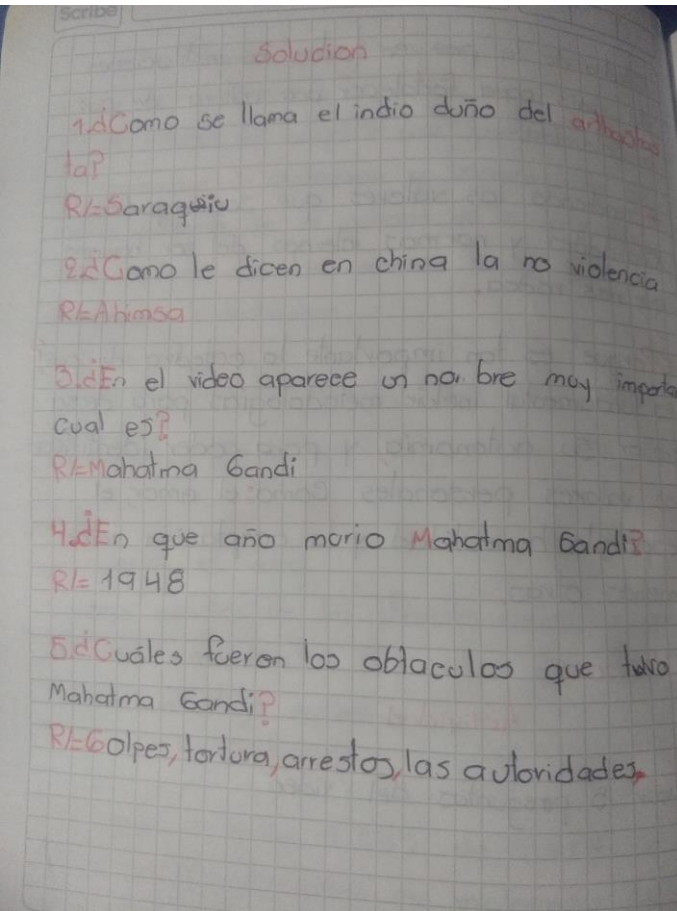 Scribe
Solucion
1.¿Como se llama el indio duño del
ta?
R/=Saraquiu
2.¿Como le dicen en china la no violencia
R/=Ahimsa
3.¿En el video aparece un no. bre muy importa
cual es?
R/=Mahatma Gandi
4.¿En que año murio Mahatma Gandi?
R/= 1948
5.¿Cuáles fueron los obtaculos que tuvo
Mahatma Gandi?
R/=Golpes, tortura, arrestos, las autoridades,